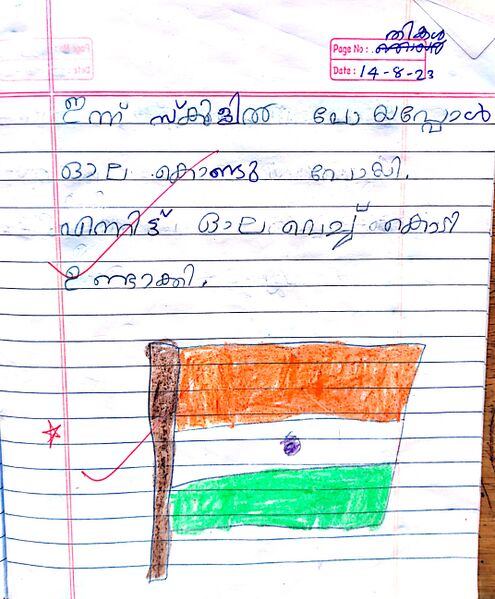 തികൾ
Page No :
Date : 14-8-23
ഇന്ന് സ്കൂളിൽ പോയപ്പോൾ
ഓല കൊണ്ടു പോയി.
എന്നിട്ട് ഓല വെച്ച് കൊടി
ഉണ്ടാക്കി.